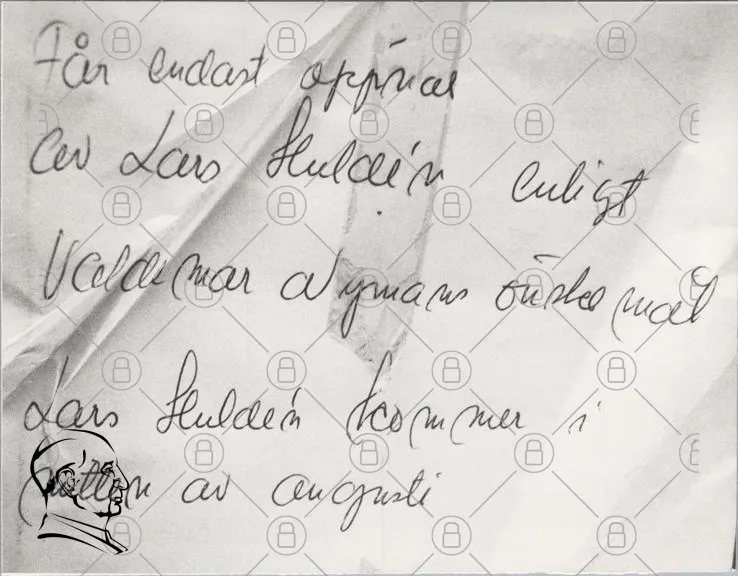 Får endast öppnas
av Lars Huldén enligt
Valdemar Nymans önskemål
Lars Huldén kommer i
mitten av augusti